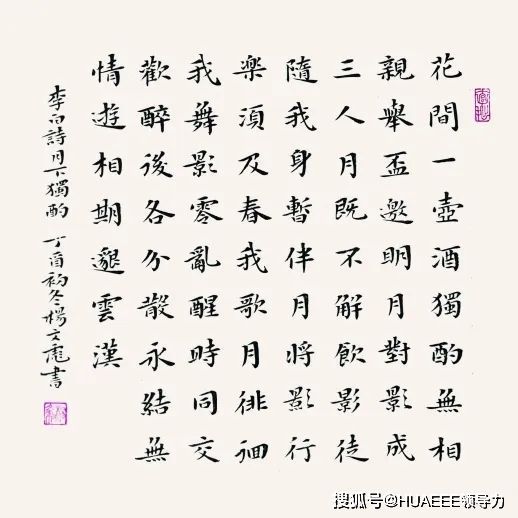 花間一壺酒獨酌無相
親舉盃邀明月對影成
三人月既不解飲影徒
隨我身暫伴月將影行
樂須及春我歌月徘徊
我舞影零亂醒時同交
歡醉後各分散永結無
情遊相期邈雲漢
李白詩月下獨酌 丁酉初冬楊文彪書
搜狐号@HUAEEE领导力